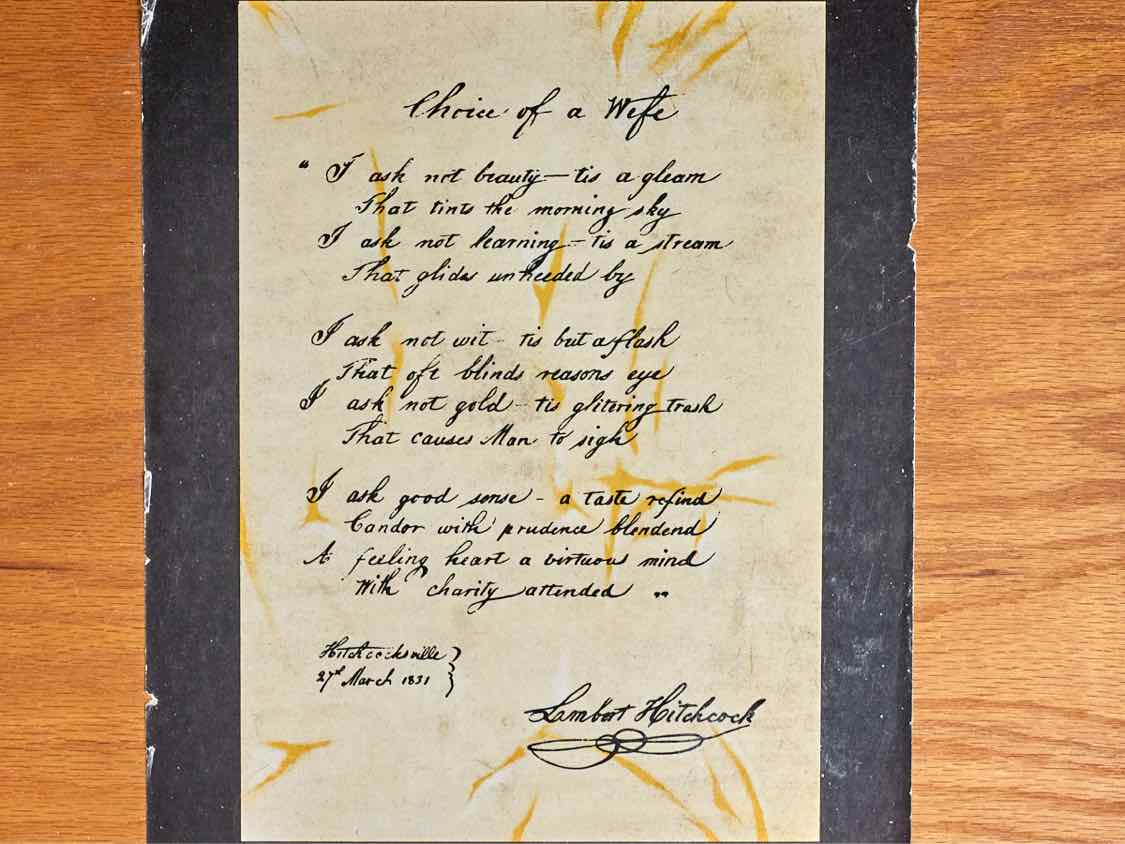 Choice of a Wife
" I ask not beauty — tis a gleam
That tints the morning sky
I ask not learning – tis a stream
That glides unheeded by
I ask not wit – tis but a flash
That oft blinds reasons eye
I ask not gold – tis glitering trash
That causes Man to sigh
I ask good sense – a taste refind
Candor with prudence blendend
A feeling heart a virtuous mind
With charity attended "
Hitchcocksville }
27th March 1831 }
Lambert Hitchcock